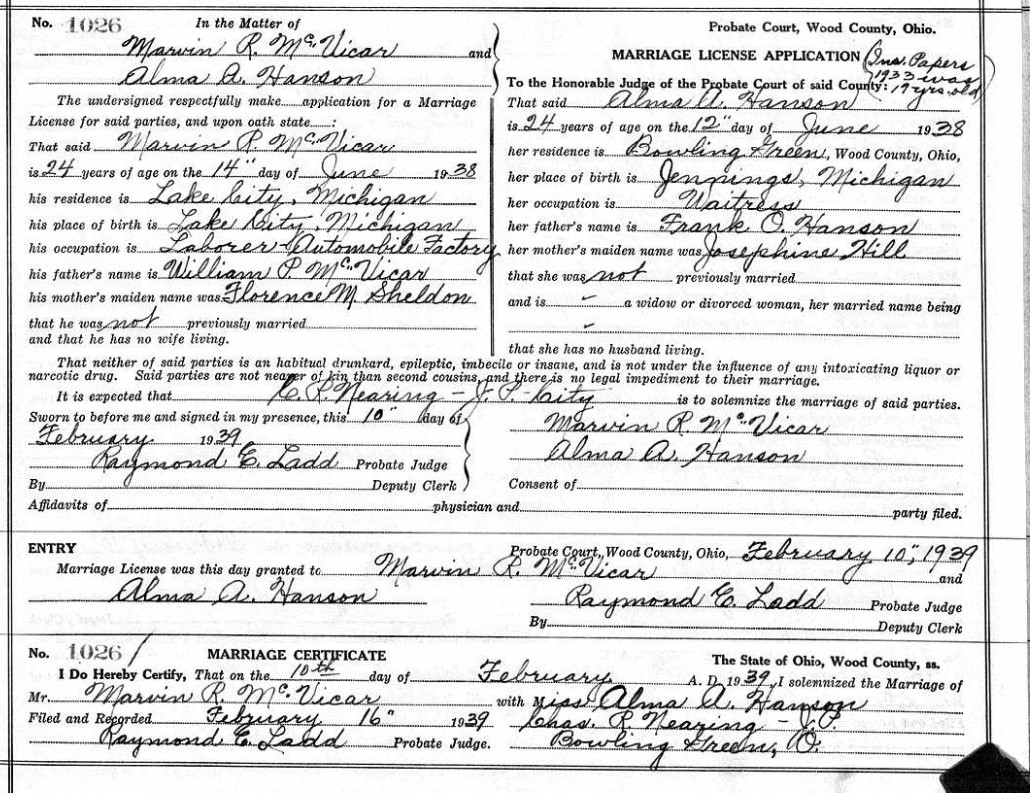 No. 1026 In the Matter of
Marvin R. McVicar and
Alma A. Hanson
The undersigned respectfully make application for a Marriage
License for said parties, and upon oath state :
That said Marvin R. McVicar
is 24 years of age on the 14" day of June 1938
his residence is Lake City, Michigan
his place of birth is Lake City, Michigan
his occupation is Laborer - Automobile Factory
his father's name is William P. McVicar
his mother's maiden name was Florence M. Sheldon
that he was not previously married
and that he has no wife living.
Probate Court, Wood County, Ohio.
MARRIAGE LICENSE APPLICATION
(Ins. Papers
1933 was
19 yrs. old)
To the Honorable Judge of the Probate Court of said County:
That said Alma A. Hanson
is 24 years of age on the 12" day of June 1938
her residence is Bowling Green, Wood County, Ohio,
her place of birth is Jennings, Michigan
her occupation is Waitress
her father's name is Frank O. Hanson
her mother's maiden name was Josephine Hill
that she was not previously married
and is - a widow or divorced woman, her married name being
-
that she has no husband living.
That neither of said parties is an habitual drunkard, epileptic, imbecile or insane, and is not under the influence of any intoxicating liquor or
narcotic drug. Said parties are not nearer of kin than second cousins, and there is no legal impediment to their marriage.
It is expected that C. R. Nearing - J. P. - City is to solemnize the marriage of said parties.
Sworn to before me and signed in my presence, this 10" day of
February 1939
Raymond E. Ladd Probate Judge
By Deputy Clerk
Marvin R. McVicar
Alma A. Hanson
Consent of
Affidavits of physician and party filed.
ENTRY Probate Court, Wood County, Ohio, February 10", 1939
Marriage License was this day granted to Marvin R. McVicar and
Alma A. Hanson Raymond E. Ladd Probate Judge
By Deputy Clerk
No. 1026 MARRIAGE CERTIFICATE The State of Ohio, Wood County, ss.
I Do Hereby Certify, That on the 10th day of February A. D. 1939, I solemnized the Marriage of
Mr. Marvin R. McVicar with Miss Alma A. Hanson
Filed and Recorded February 16" 1939 Chas. R. Nearing - J. P.
Raymond E. Ladd Probate Judge. Bowling Green, O.